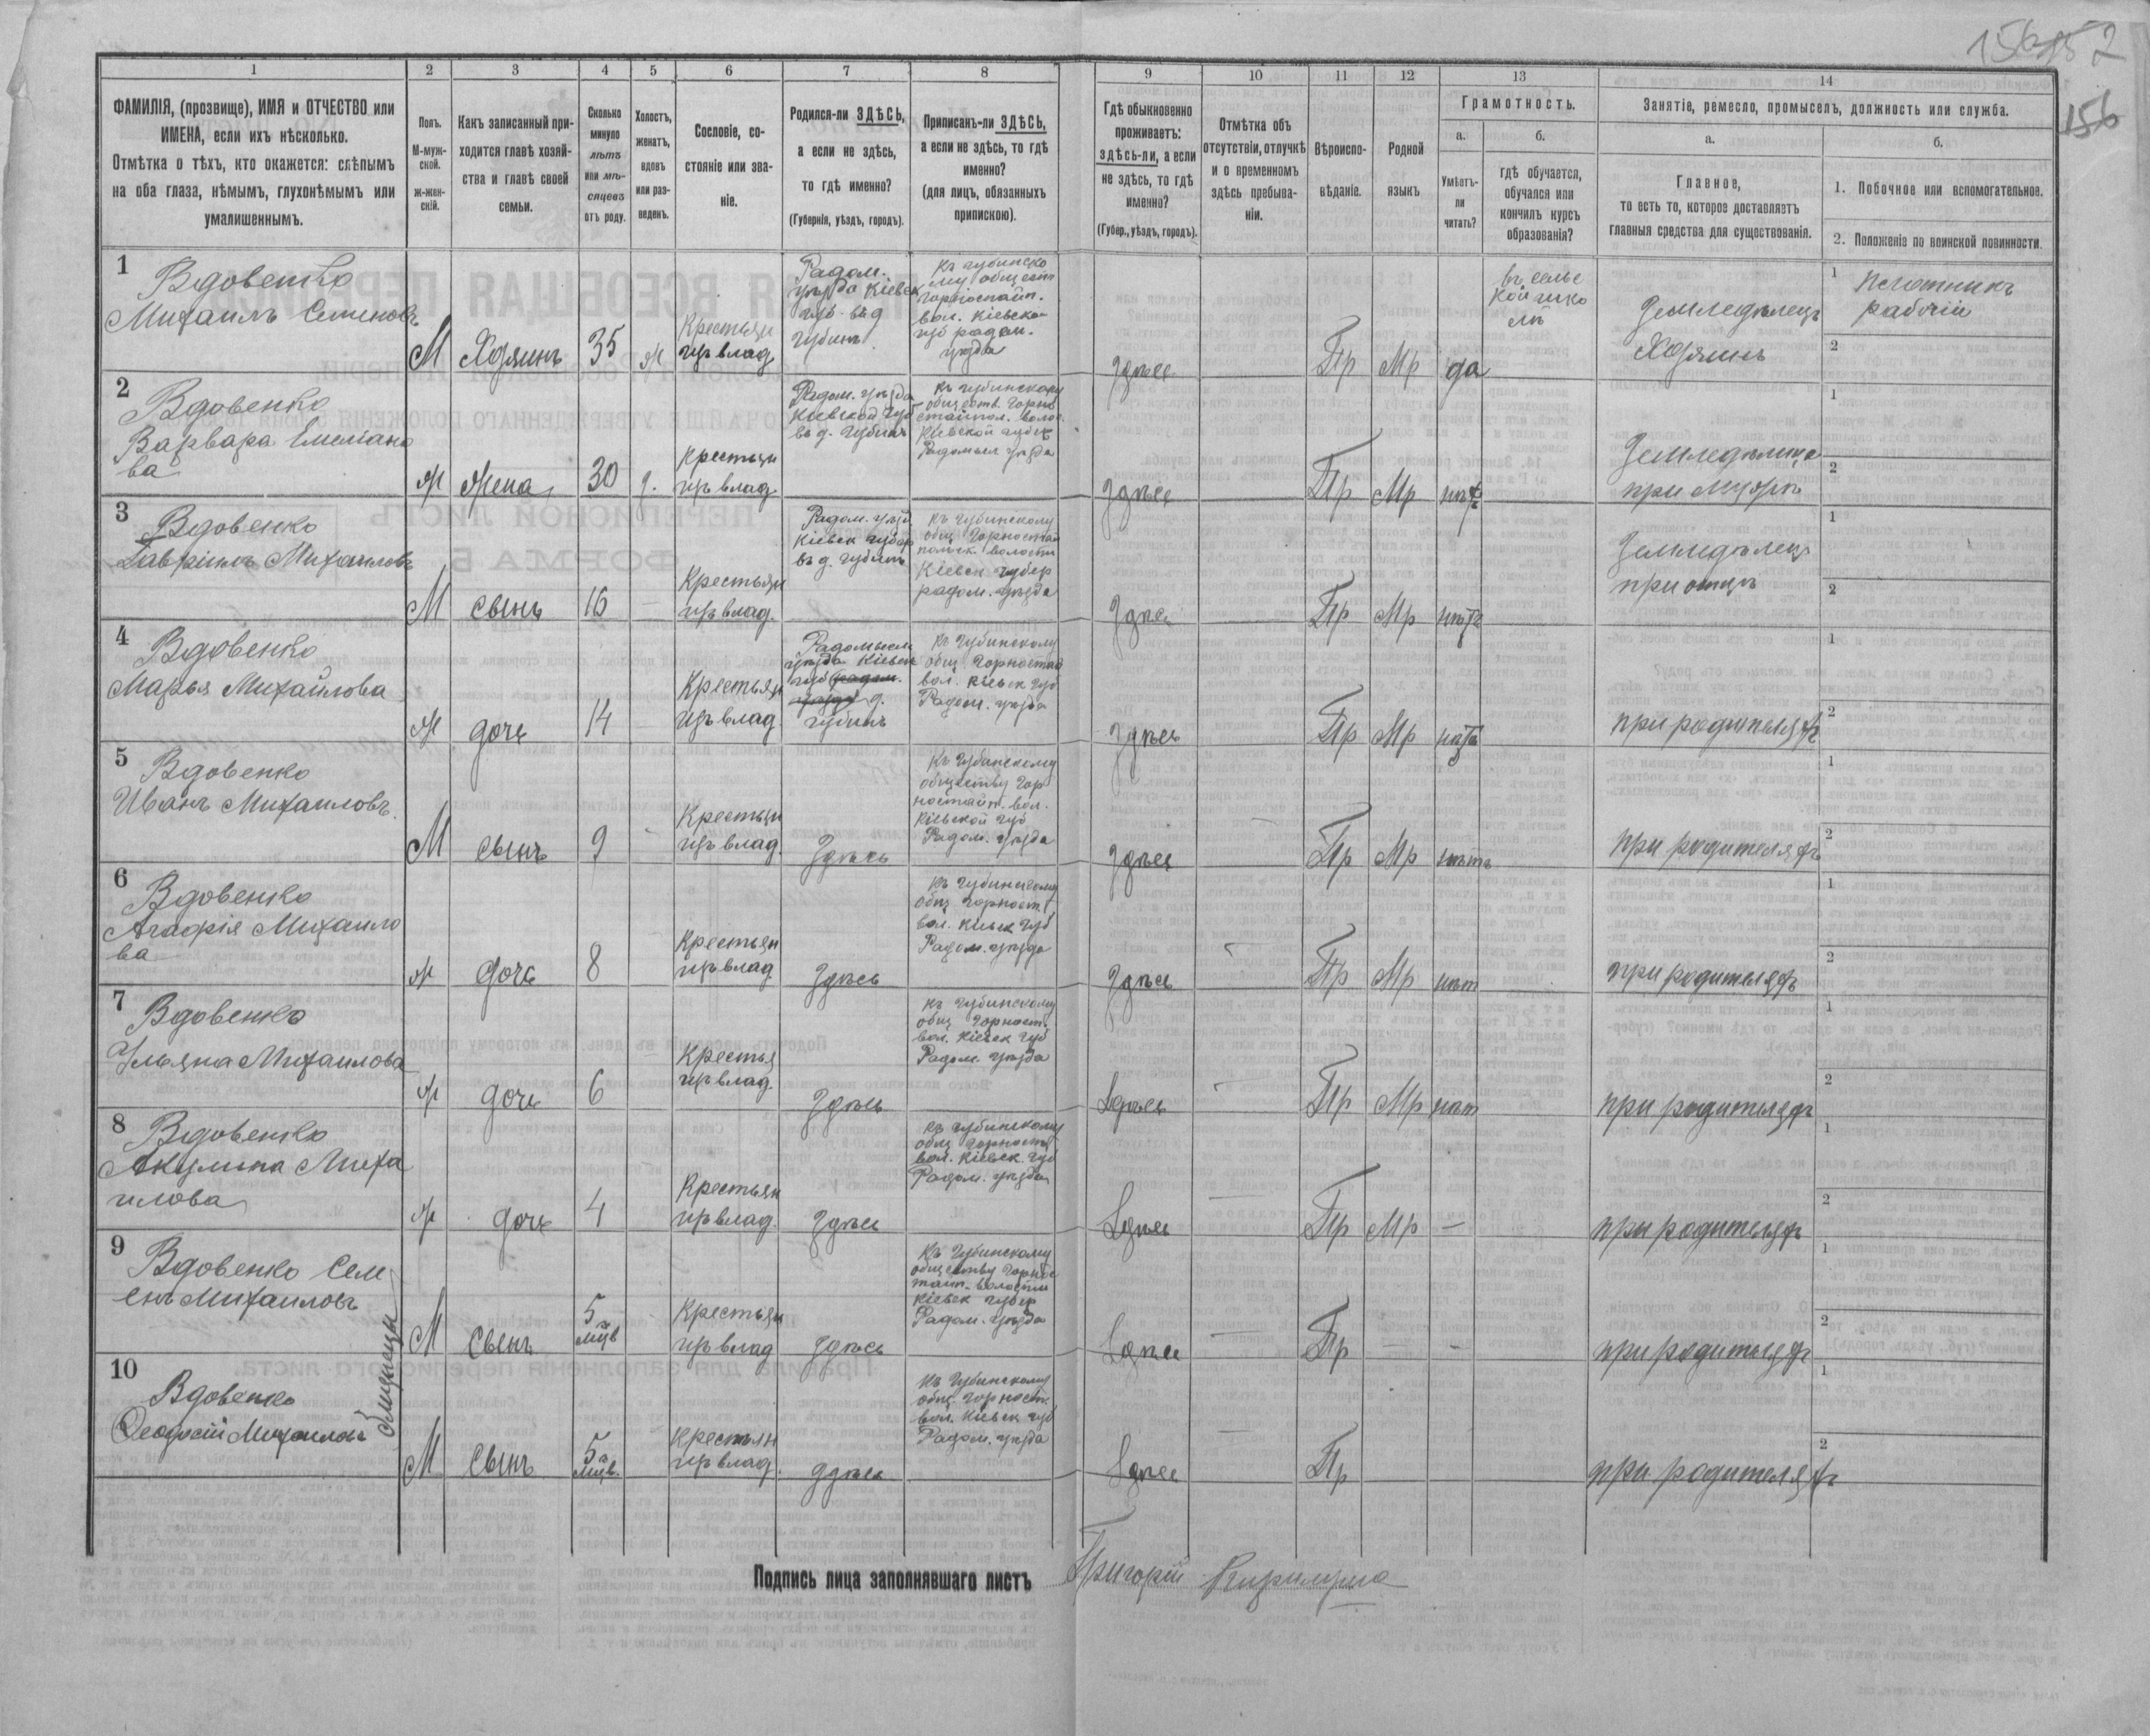 156 152
156
1
2
3
4
5
6
7
8
9
10
11
12
13
14
ФАМИЛІЯ, (прозвище), ИМЯ и ОТЧЕСТВО или
ИМЕНА, если ихъ нѣсколько.
Отмѣтка о тѣхъ, кто окажется: слѣпымъ
на оба глаза, нѣмымъ, глухонѣмымъ или
умалишеннымъ.
Полъ.
М-муж-
ской.
ж-жен-
скій.
Какъ записанный при-
ходится главѣ хозяй-
ства и главѣ своей
семьи.
Сколько
минуло
лѣтъ
или мѣ-
сяцевъ
отъ роду.
Холостъ,
женатъ,
вдовъ
или раз-
веденъ.
Сословіе, со-
стояніе или зва-
ніе.
Родился-ли ЗДѢСЬ,
а если не здѣсь,
то гдѣ именно?
(Губернія, уѣздъ, городъ).
Приписанъ-ли ЗДѢСЬ,
а если не здѣсь, то гдѣ
именно?
(для лицъ, обязанныхъ
припискою).
Гдѣ обыкновенно
проживаетъ:
здѣсь-ли, а если
не здѣсь, то гдѣ
именно?
(Губер., уѣздъ, городъ).
Отмѣтка объ
отсутствіи, отлучкѣ
и о временномъ
здѣсь пребыва-
ніи.
Вѣроиспо-
вѣданіе.
Родной
языкъ
Грамотность.
а.
Умѣетъ-
ли
читать?
б.
гдѣ обучается,
обучался или
кончилъ курсъ
образованія?
Занятіе, ремесло, промыселъ, должность или служба.
а.
Главное,
то есть то, которое доставляетъ
главныя средства для существованія.
б.
1. Побочное или вспомогательное.
2. Положеніе по воинской повинности.
1
Вдовенко
Михаилъ Семеновъ
М Хозяинъ 35 ж
Крестьян
изъ влад.
Радом.
уѣзда Кіевск
губ. въ д
Губинъ
Къ Губинско
му общест
Горностайп.
вол. Кіевско
губ радом.
уѣзда
Здѣсь
Пр Мр да
въ сельс
кой шко
лѣ
Земледѣлецъ
Хозяинъ
1 Плотникъ
рабочій
2
2
Вдовенко
Варвара Емеліано
ва
ж Жена 30 з.
Крестьян
изъ влад.
Радом. уѣзда
Кіевской губ
въ д. Губинъ
Къ Губинскому
обществ. Горно
стайпол. волос.
Кіевской губер
Радомысл уѣзда
Здѣсь
Пр Мр нѣтъ
Земледѣлица
при мужѣ
1
2
3
Вдовенко
Гавріилъ Михаиловъ
М сынъ 16
Крестьян
изъ влад.
Радом. уѣзд
Кіевск губер
въ д. Губинъ
Къ Губинскому
общ Горностай
польск. волости
Кіевск губер
радом. уѣзда
Здѣсь
Пр Мр нѣтъ
Земледѣлецъ
при отцѣ
1
2
4
Вдовенко
Марья Михайлова
ж дочь 14
Крестьян
изъ влад
Радомысл
уѣзда Кіевск
губ радом.
уѣзда д.
Губинъ
Къ Губинскому
общ Горностай
вол. Кіевск губ
Радом. уѣзда
Здѣсь
Пр Мр нѣтъ
при родителяхъ
1
2
5
Вдовенко
Иванъ Михаиловъ.
М сынъ 9
Крестьян
изъ влад.
Здѣсь
Къ Губинскому
обществу Гор
ностайп. вол.
Кіевской губ
Радом. уѣзда
Здѣсь
Пр Мр нѣтъ
при родителяхъ
1
2
6
Вдовенко
Агафія Михаило
ва
ж дочь 8
Крестьян
изъ влад
Здѣсь
Къ Губинскому
общ Горност
вол. Кіевск губ
Радом. уѣзда
Здѣсь
Пр Мр нѣт
при родителяхъ
1
2
7
Вдовенко
Ульяна Михаилова
ж дочь 6
Крестья
изъ влад.
Здѣсь
Къ Губинскому
общ Горност.
вол. Кіевск губ
Радом. уѣзда
Здѣсь
Пр Мр нѣт
при родителяхъ
1
2
8
Вдовенко
Акулина Миха
илова
ж дочь 4
Крестьян
изъ влад.
Здѣсь
Къ Губинскому
общ Горност
вол. Кіевск губ
Радом. уѣзда
Здѣсь
Пр Мр —
при родителяхъ
1
2
9
Вдовенко Сем
енъ Михаиловъ
близнецы
М Сынъ 5
мцв
Крестьян
изъ влад
Здѣсь
Къ Губинскому
обществу Горнос
тайп. волости
Кіевск губер
Радом. уѣзда
Здѣсь
Пр — -
при родителяхъ
1
2
10
Вдовенко
Феодосій Михаиловъ
М Сынъ 5
мцв.
Крестьян
изъ влад.
Здѣсь
Къ Губинскому
общ. Горност.
вол. Кіевск губ
Радом. уѣзда
Здѣсь
Пр
при родителяхъ
1
2
Подпись лица заполнявшаго листъ Григорій